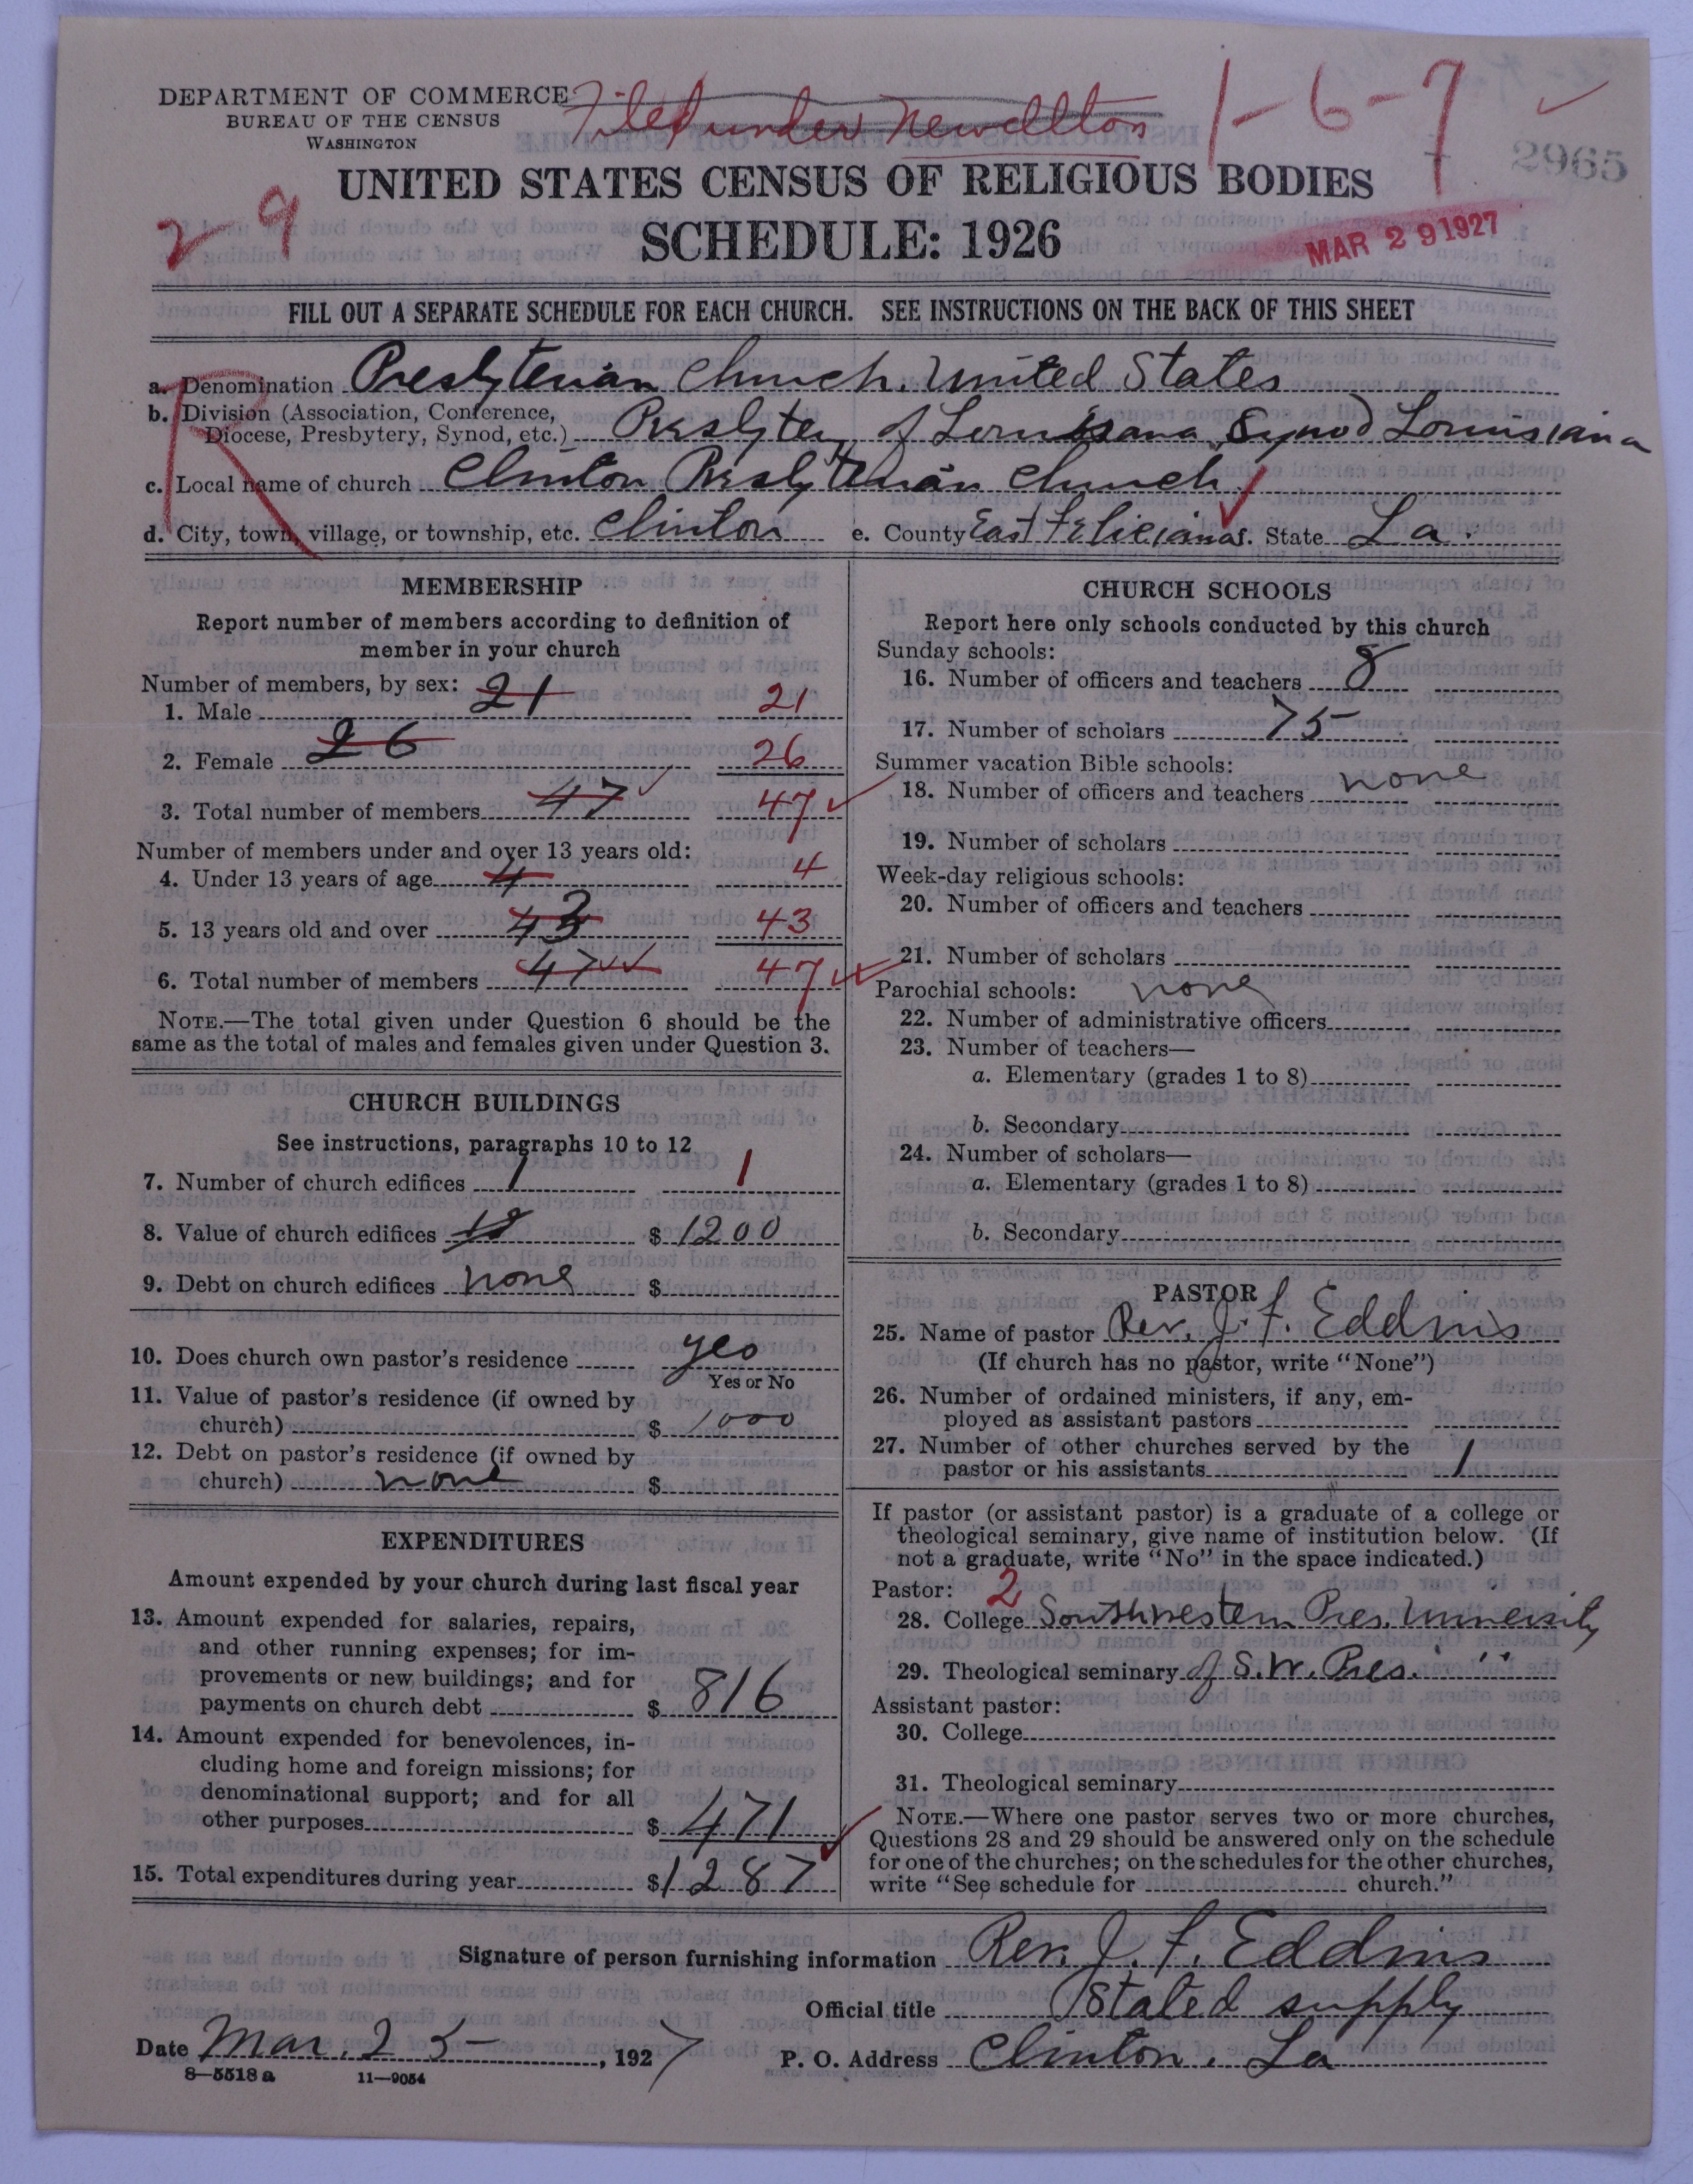 DEPARTMENT OF COMMERCE
BUREAU OF THE CENSUS
WASHINGTON
Filed under Newellton
1-6-7
2965
2-9
UNITED STATES CENSUS OF RELIGIOUS BODIES
SCHEDULE: 1926
MAR 29 1927
FILL OUT A SEPARATE SCHEDULE FOR EACH CHURCH. SEE INSTRUCTIONS ON THE BACK OF THIS SHEET
R
a. Denomination Presbyterian Church, United States
b. Division (Association, Conference,
Diocese, Presbytery, Synod, etc.) Presbytery of Louisiana, Synod Louisiana
c. Local name of church Clinton Presbyterian Church
d. City, town, village, or township, etc. Clinton e. County East Feliciana f. State La.
MEMBERSHIP
Report number of members according to definition of
member in your church
Number of members, by sex:
1. Male 21 21
2. Female 26 26
3. Total number of members 47 47
Number of members under and over 13 years old:
4. Under 13 years of age 4 4
5. 13 years old and over 43 43
6. Total number of members 47 47
NOTE.—The total given under Question 6 should be the
same as the total of males and females given under Question 3.
CHURCH BUILDINGS
See instructions, paragraphs 10 to 12
7. Number of church edifices 1 1
8. Value of church edifices 12 $1200
9. Debt on church edifices none $
10. Does church own pastor's residence yes
Yes or No
11. Value of pastor's residence (if owned by
church) $ 1000
12. Debt on pastor's residence (if owned by
church) none $
EXPENDITURES
Amount expended by your church during last fiscal year
13. Amount expended for salaries, repairs,
and other running expenses; for im-
provements or new buildings; and for
payments on church debt $ 816
14. Amount expended for benevolences, in-
cluding home and foreign missions; for
denominational support; and for all
other purposes $ 471
15. Total expenditures during year $1287
CHURCH SCHOOLS
Report here only schools conducted by this church
Sunday schools:
16. Number of officers and teachers 8
17. Number of scholars 75
Summer vacation Bible schools:
18. Number of officers and teachers none
19. Number of scholars
Week-day religious schools:
20. Number of officers and teachers
21. Number of scholars
Parochial schools: none
22. Number of administrative officers
23. Number of teachers—
a. Elementary (grades 1 to 8)
b. Secondary
24. Number of scholars—
a. Elementary (grades 1 to 8)
b. Secondary
PASTOR
25. Name of pastor Rev. J. F. Eddins
(If church has no pastor, write "None")
26. Number of ordained ministers, if any, em-
ployed as assistant pastors
27. Number of other churches served by the
pastor or his assistants 1
If pastor (or assistant pastor) is a graduate of a college or
theological seminary, give name of institution below. (If
not a graduate, write "No" in the space indicated.)
Pastor: 2
28. College Southwestern Pres. University
29. Theological seminary of S.W. Pres. "
Assistant pastor:
30. College
31. Theological seminary
NOTE.—Where one pastor serves two or more churches,
Questions 28 and 29 should be answered only on the schedule
for one of the churches; on the schedules for the other churches,
write "See schedule for church."
Signature of person furnishing information Rev. J. F. Eddins
Official title Stated supply
Date Mar. 25, 1927 P. O. Address Clinton, La
8—5518 a 11—9054